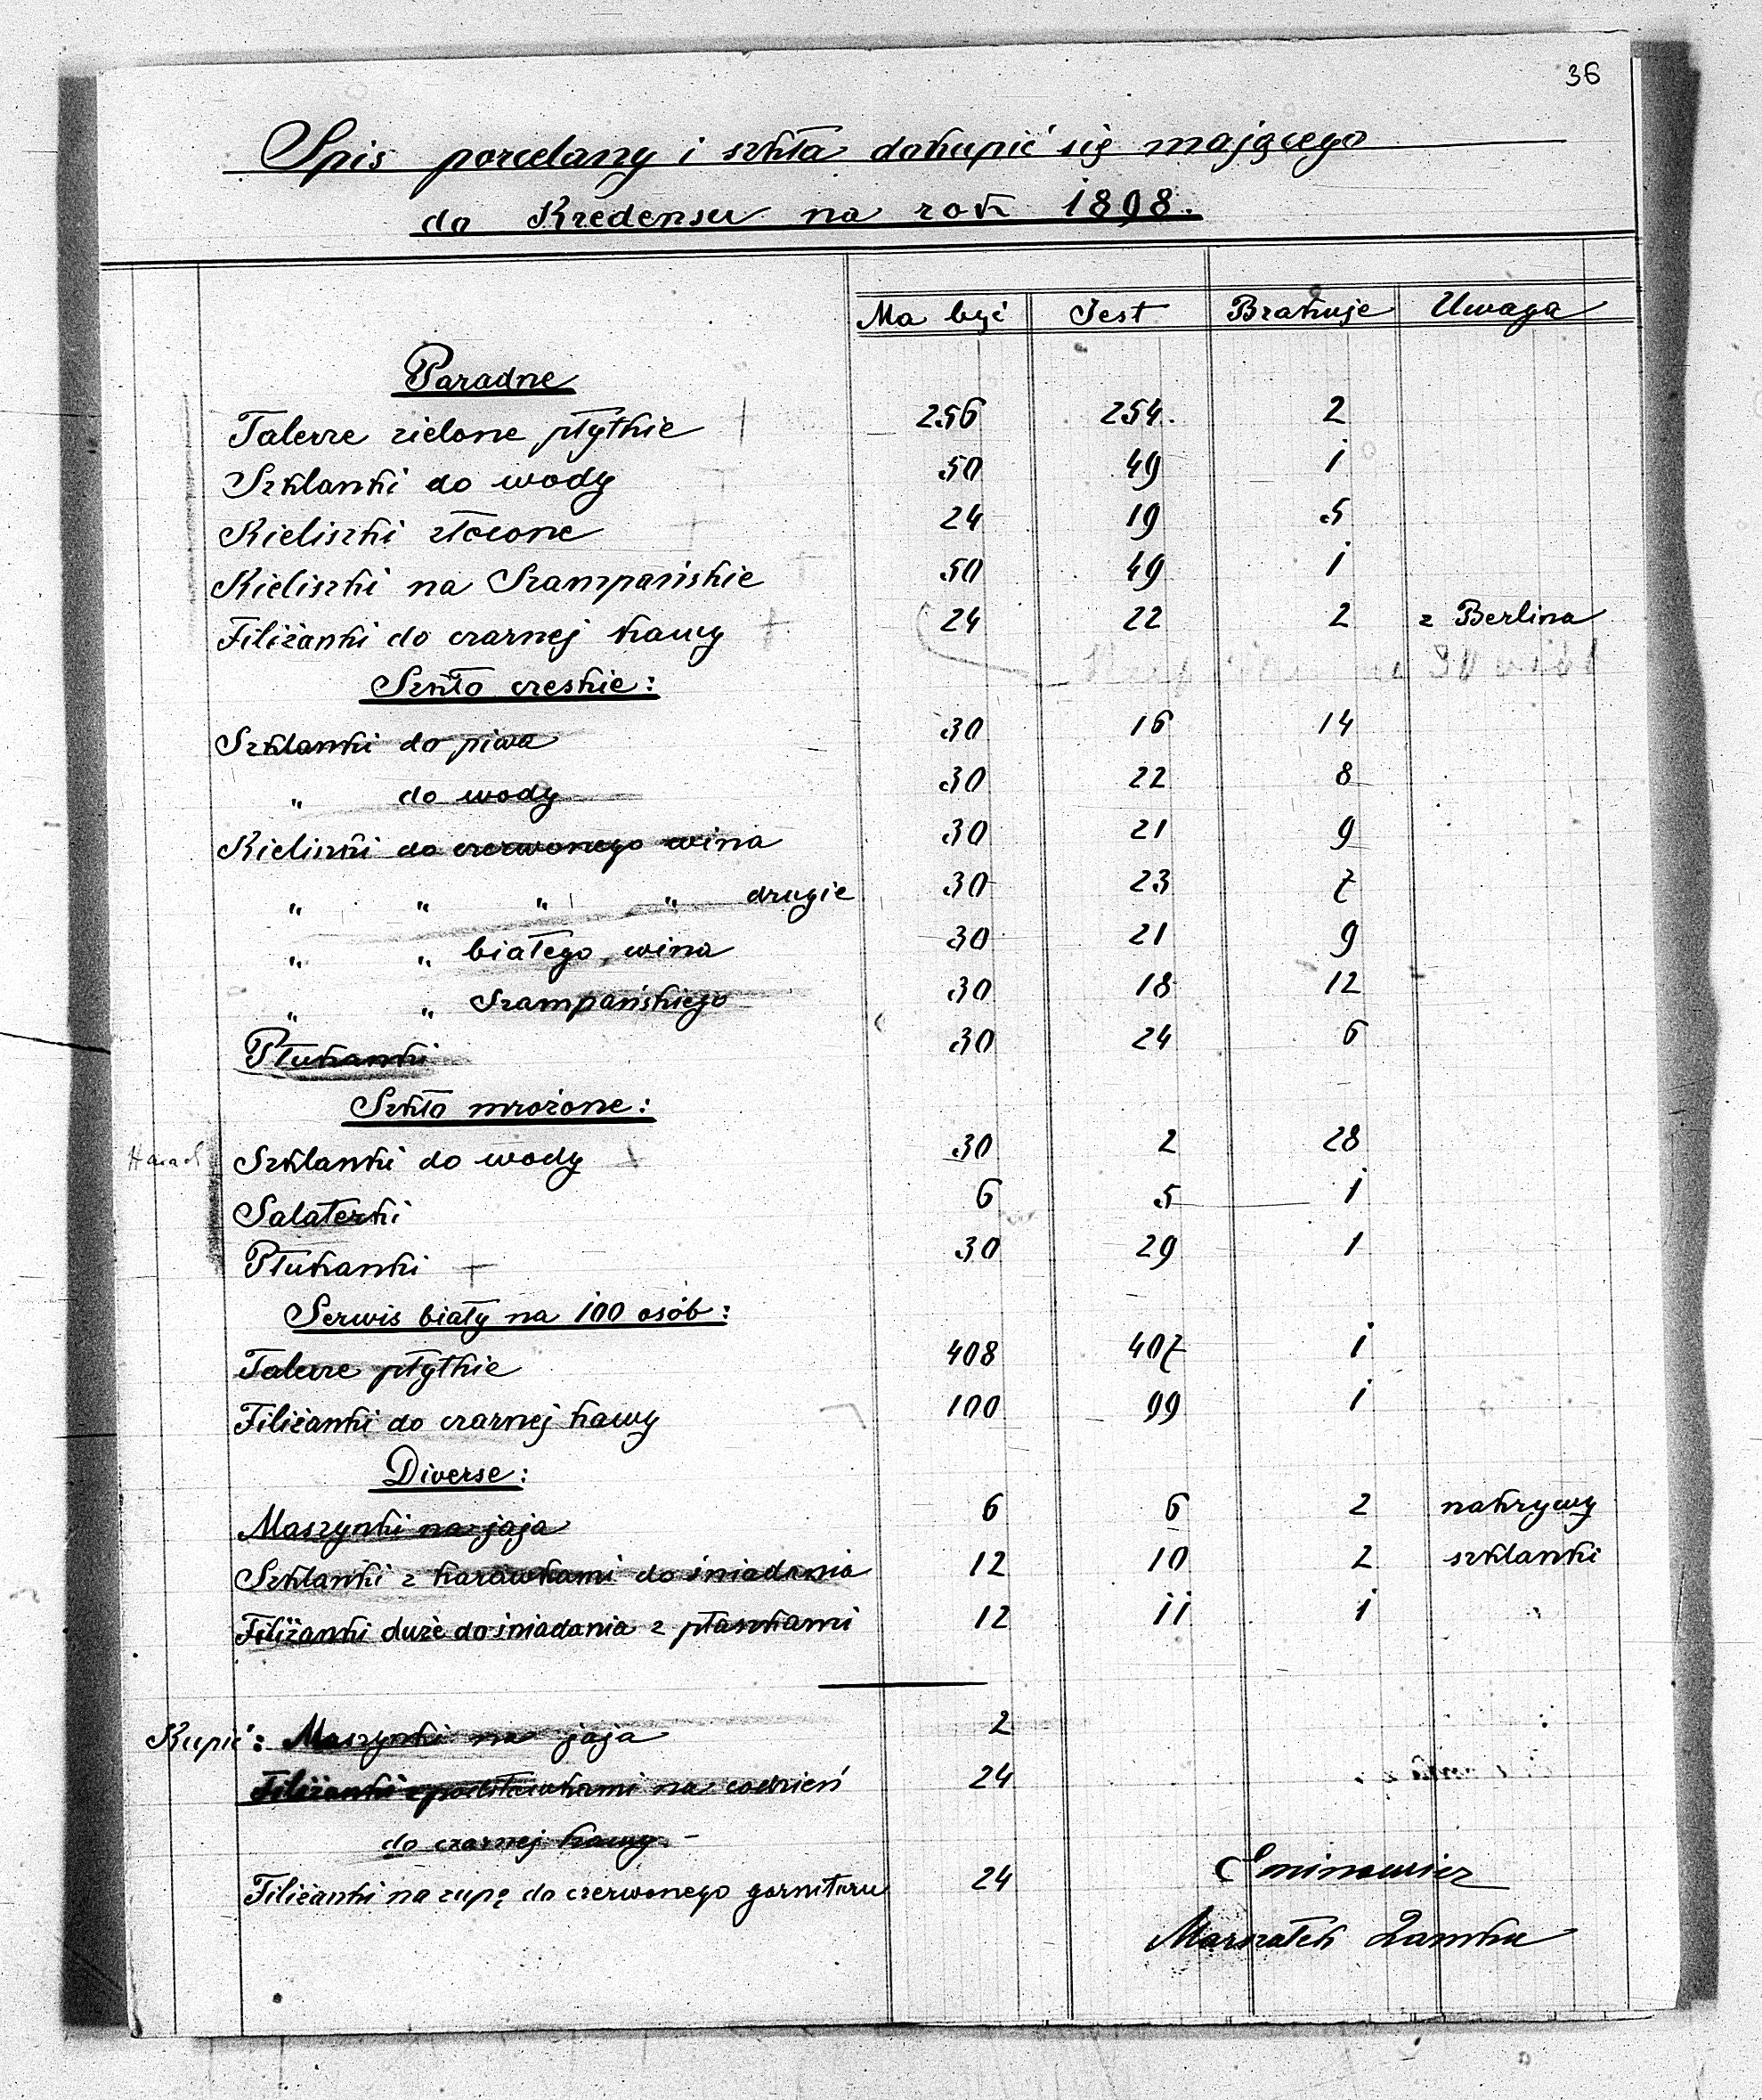 36
Spis porcelany i szkła dokupić się mającego
do Kredensu na rok 1898.
Ma być Jest Brakuje Uwaga
Paradne
Talerze zielone płytkie 256 254. 2
Szklanki do wody 50 49 1
Kieliszki złocone 24 19 5
Kieliszki na Szampańskie 50 49 1
Filiżanki do czarnej kawy 24 22 2 z Berlina
Szkło czeskie:
Szklanki do piwa 30 16 14
" do wody 30 22 8
Kieliszki do czerwonego wina 30 21 9
" " " " drugie 30 23 7
" " białego wina 30 21 9
" " Szampańskiego 30 18 12
Płukanki 30 24 6
Szkło mrożone:
Szklanki do wody 30 2 28
Salaterki 6 5 1
Płukanki 30 29 1
Serwis biały na 100 osób:
Talerze płytkie 408 407 1
Filiżanki do czarnej kawy 100 99 1
Diverse:
Maszynki na jaja 6 6 2 nakrywy
Szklanki z karawkami do śniadania 12 10 2 szklanki
Filiżanki duże do śniadania z płaszkami 12 11 1
Kupić: Maszynki na jaja 2
Filiżanki z podstawkami na codzień 24
do czarnej kawy -
Filiżanki na zupę do czerwonego garnituru 24
Eminowicz
Marszałek Zamku